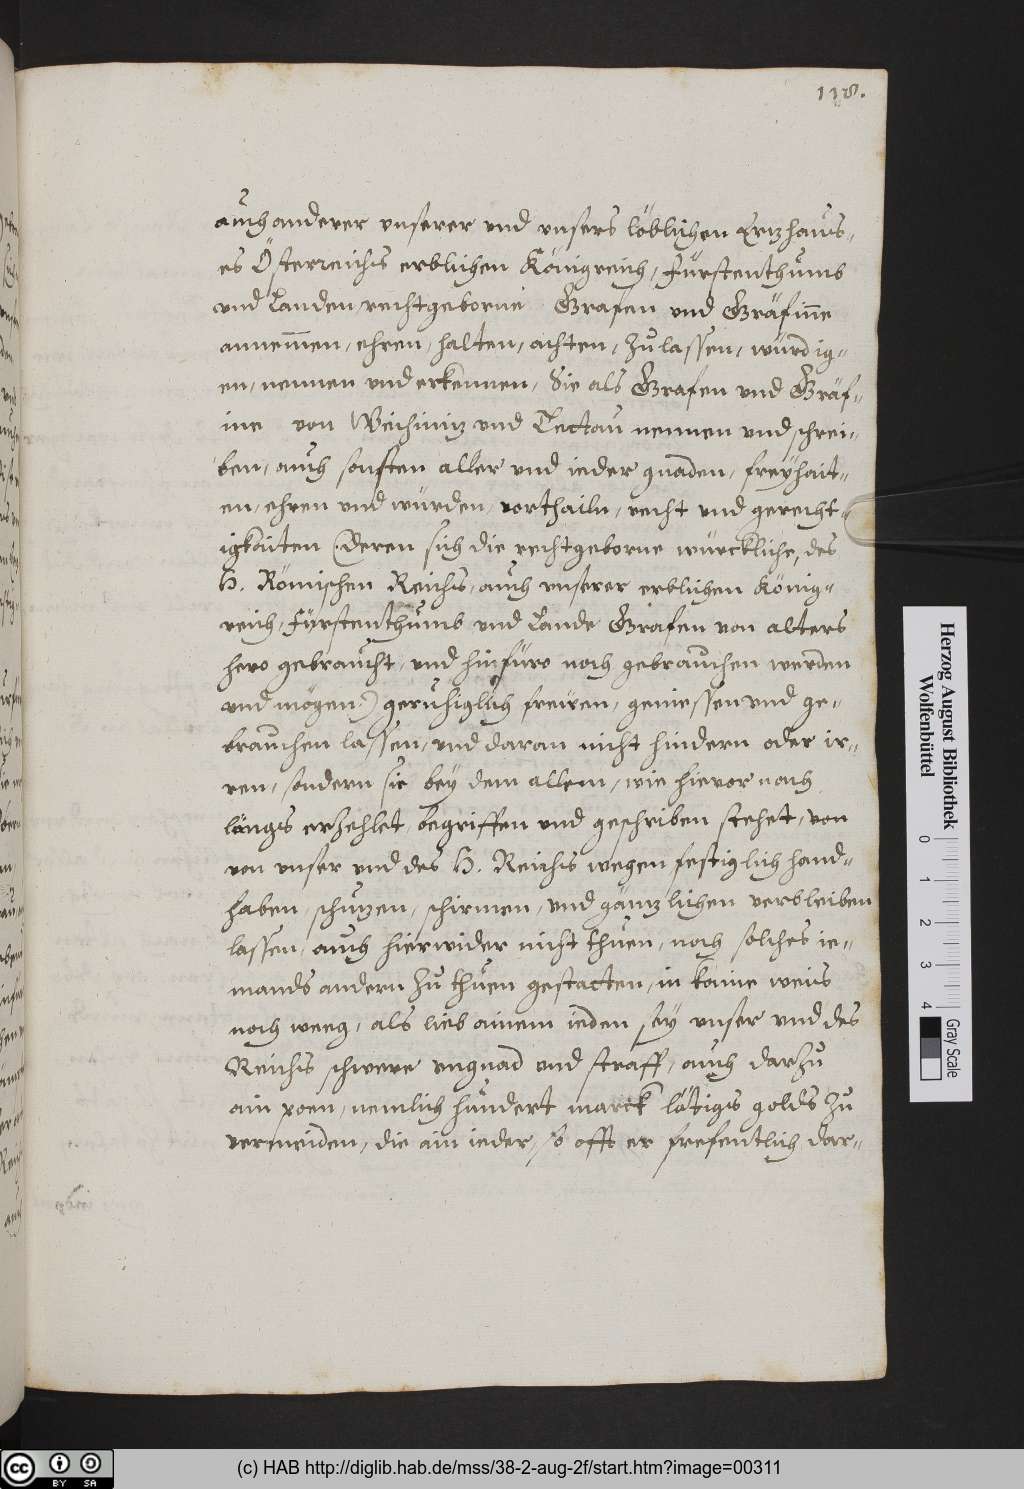 118.
auch anderer unserer und unsers löblichen Ertzhaus-
es Österreichs erblichen Königreich, Fürstenthumb
und Landen rechtgeborne Grafen und Gräfine
annemmen, ehren, halten, achten, zu lassen, würdig-
en, nennen und erkennen, Sie als Grafen und Gräf-
ine von und Tettau nennen und schrei-
ben, auch sonsten aller und ieder gnaden, freyhait-
en, ehren und würden, vorthailn, recht und gerecht-
igkaiten (: deren sich die rechtgeborne würckliche, des
H. Römischen Reichs, auch unserer erblichen König-
reich, Fürstenthumb und Lande Grafen von alters
hero gebraucht, und hinfüro noch gebrauchen werden
und mögen :) geruhiglich freüen, geniessen und ge-
brauchen lassen, und daran nicht hindern oder ir-
ren, sondern sie bey dem allem, wie hievor nach
längs erzehlet, begriffen und geschriben stehet, von
von unser und des H. Reichs wegen festiglich hand-
haben, schutzen, schirmen, und gäntzlichen verbleiben
lassen, auch hierwider nicht thuen, noch solches ie-
mands andern zu thuen gestatten, in kaine weis
noch weeg, als lieb ainem ieden sey unser und des
Reichs schwere ungnad und straff, auch darzu
ain poen, nemlich hundert marck lötigs golds zu
vermeiden, die ain ieder, so offt er frefentlich dar-
Herzog August Bibliothek
Wolfenbüttel
0 1 2 3 4
Gray Scale
cc BY SA
(c) HAB http://diglib.hab.de/mss/38-2-aug-2f/start.htm?image=00311